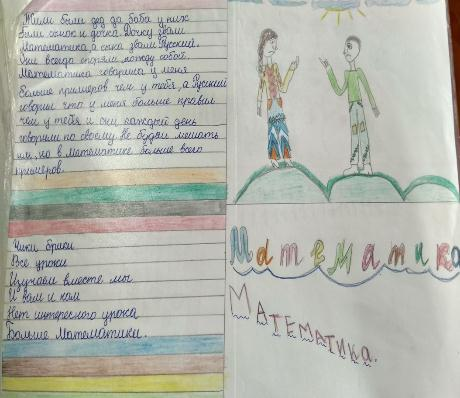 Жили были дед да баба у них
были сынок и дочка. Дочку звали
Математика а сына звали Русский.
Они всегда спорят между собой.
Математика говорила у меня
больше примеров чем у тебя, а Русский
говорил что у меня больше правил
чем у тебя и они каждый день
говорили по своему. Не будем мешать
им, но в математике больше всего
примеров.
Чики брики
Все уроки
Изучаем вместе мы
И вам и нам
Нет интересного урока
Больше Математики.
Математика
Математика.